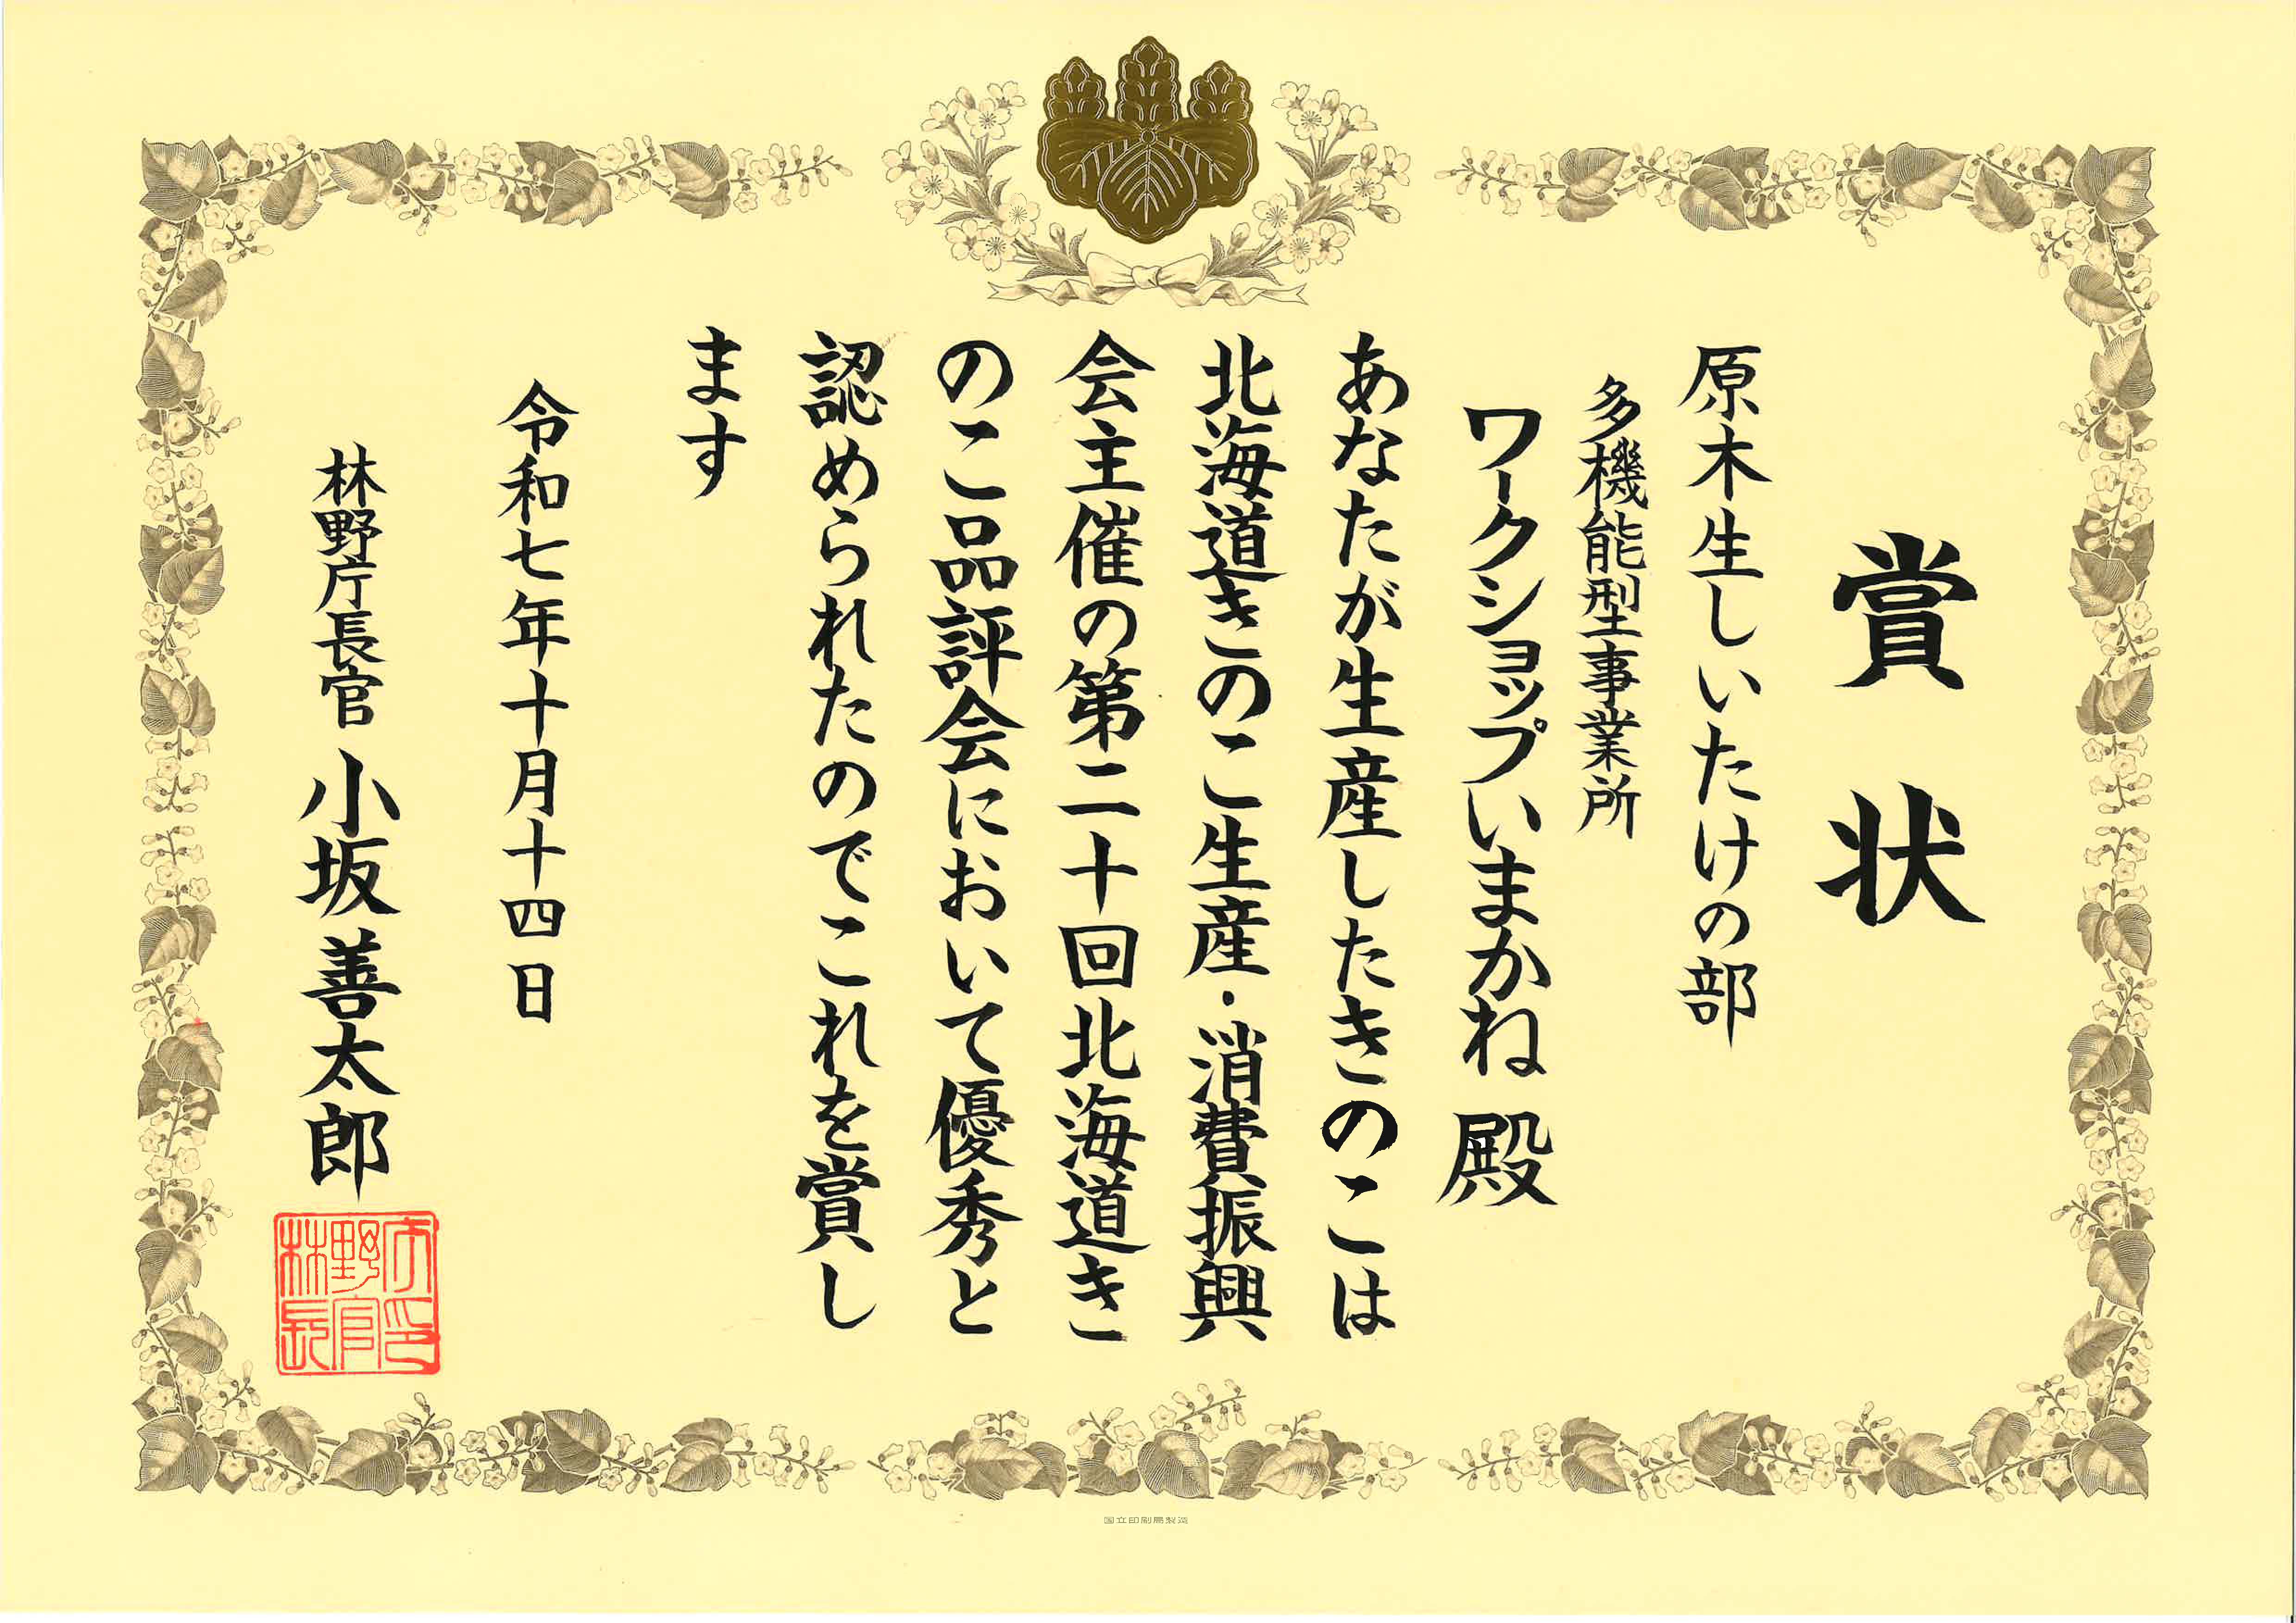 賞状
原木生しいたけの部
多機能型事業所
ワークショップいまかね 殿
あなたが生産したきのこは
北海道きのこ生産・消費振興
会主催の第二十回北海道き
のこ品評会において優秀と
認められたのでこれを賞し
ます
令和七年十月十四日
林野庁長官 小坂善太郎
林野庁長官印
国立印刷局製造